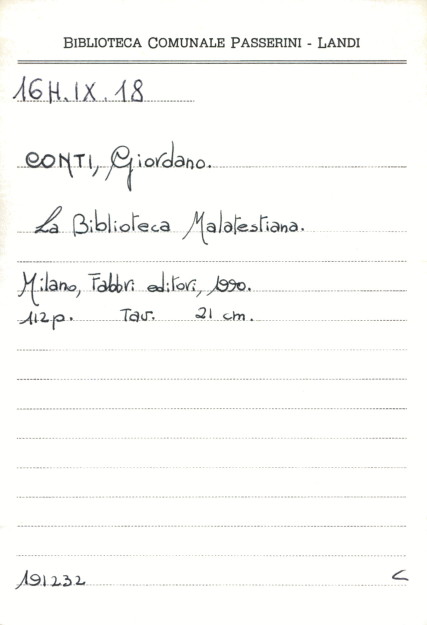 BIBLIOTECA COMUNALE PASSERINI - LANDI
16H.IX.18
CONTI, Giordano.
La Biblioteca Malatestiana.
Milano, Fabbri editori, 1990.
112p. Tav. 21 cm.
191232 C